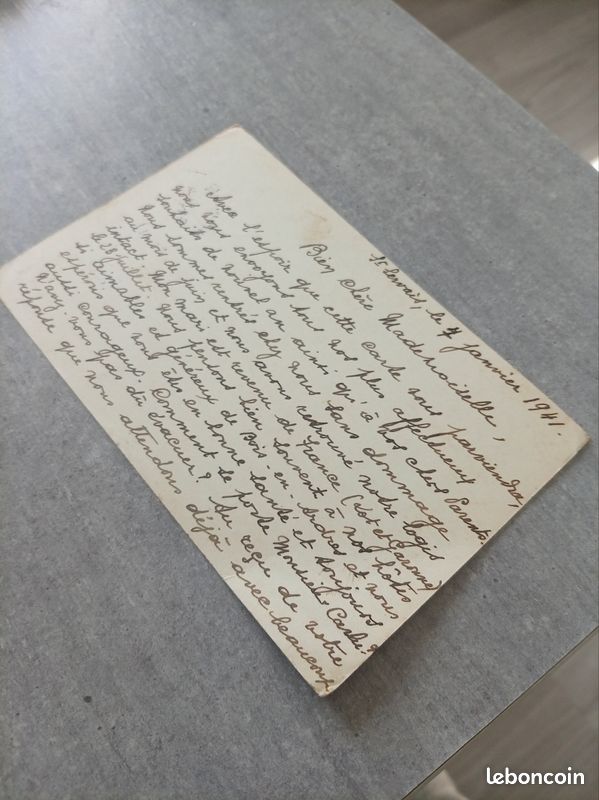 St Servais, le 4 janvier 1941.
Bien chère Mademoiselle,
Avec l'espoir que cette carte vous parviendra,
nous vous envoyons tous nos plus affectueux
souhaits de nouvel an ainsi qu'à vos chers Parents.
Nous sommes rentrés chez nous sans dommage
au mois de juin et nous avons retrouvé notre logis
intact. Mon mari est revenu de France (Lot et Garonne)
le 28 juillet. Nous pensons bien souvent à nos hôtes
si aimables et généreux de Bois-en-Ardres et nous
espérons que vous êtes en bonne santé et toujours
aussi courageux. Comment se porte Monsieur Carlu?
N'avez-vous pas dû évacuer? Au reçu de votre
réponse que nous attendons déjà avec beaucoup
leboncoin